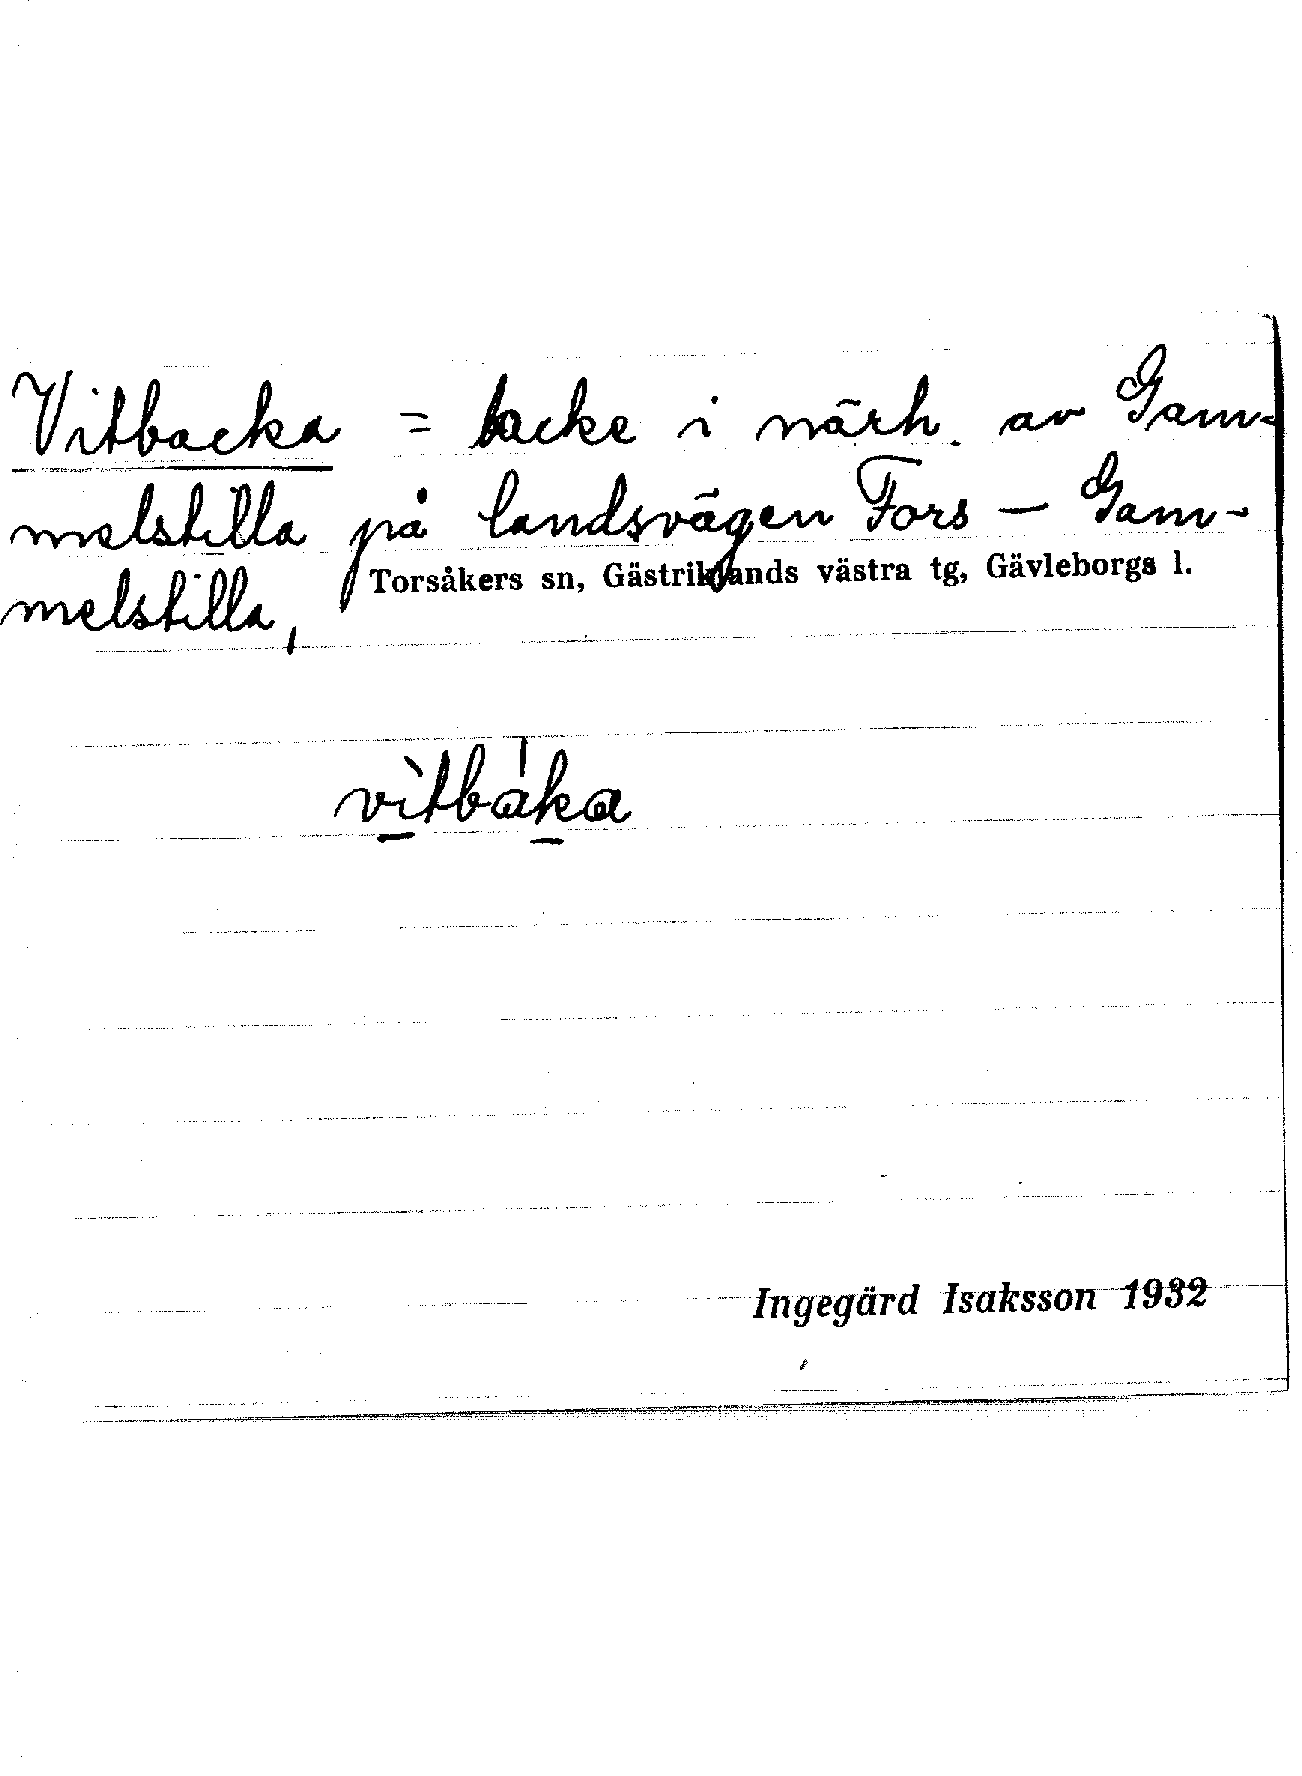 Vitbacka = backe i närh. av Gam-
melstilla på landsvägen Fors — Gam-
melstilla,
Torsåkers sn, Gästriklands västra tg, Gävleborgs l.
vìtbáka
Ingegärd Isaksson 1932